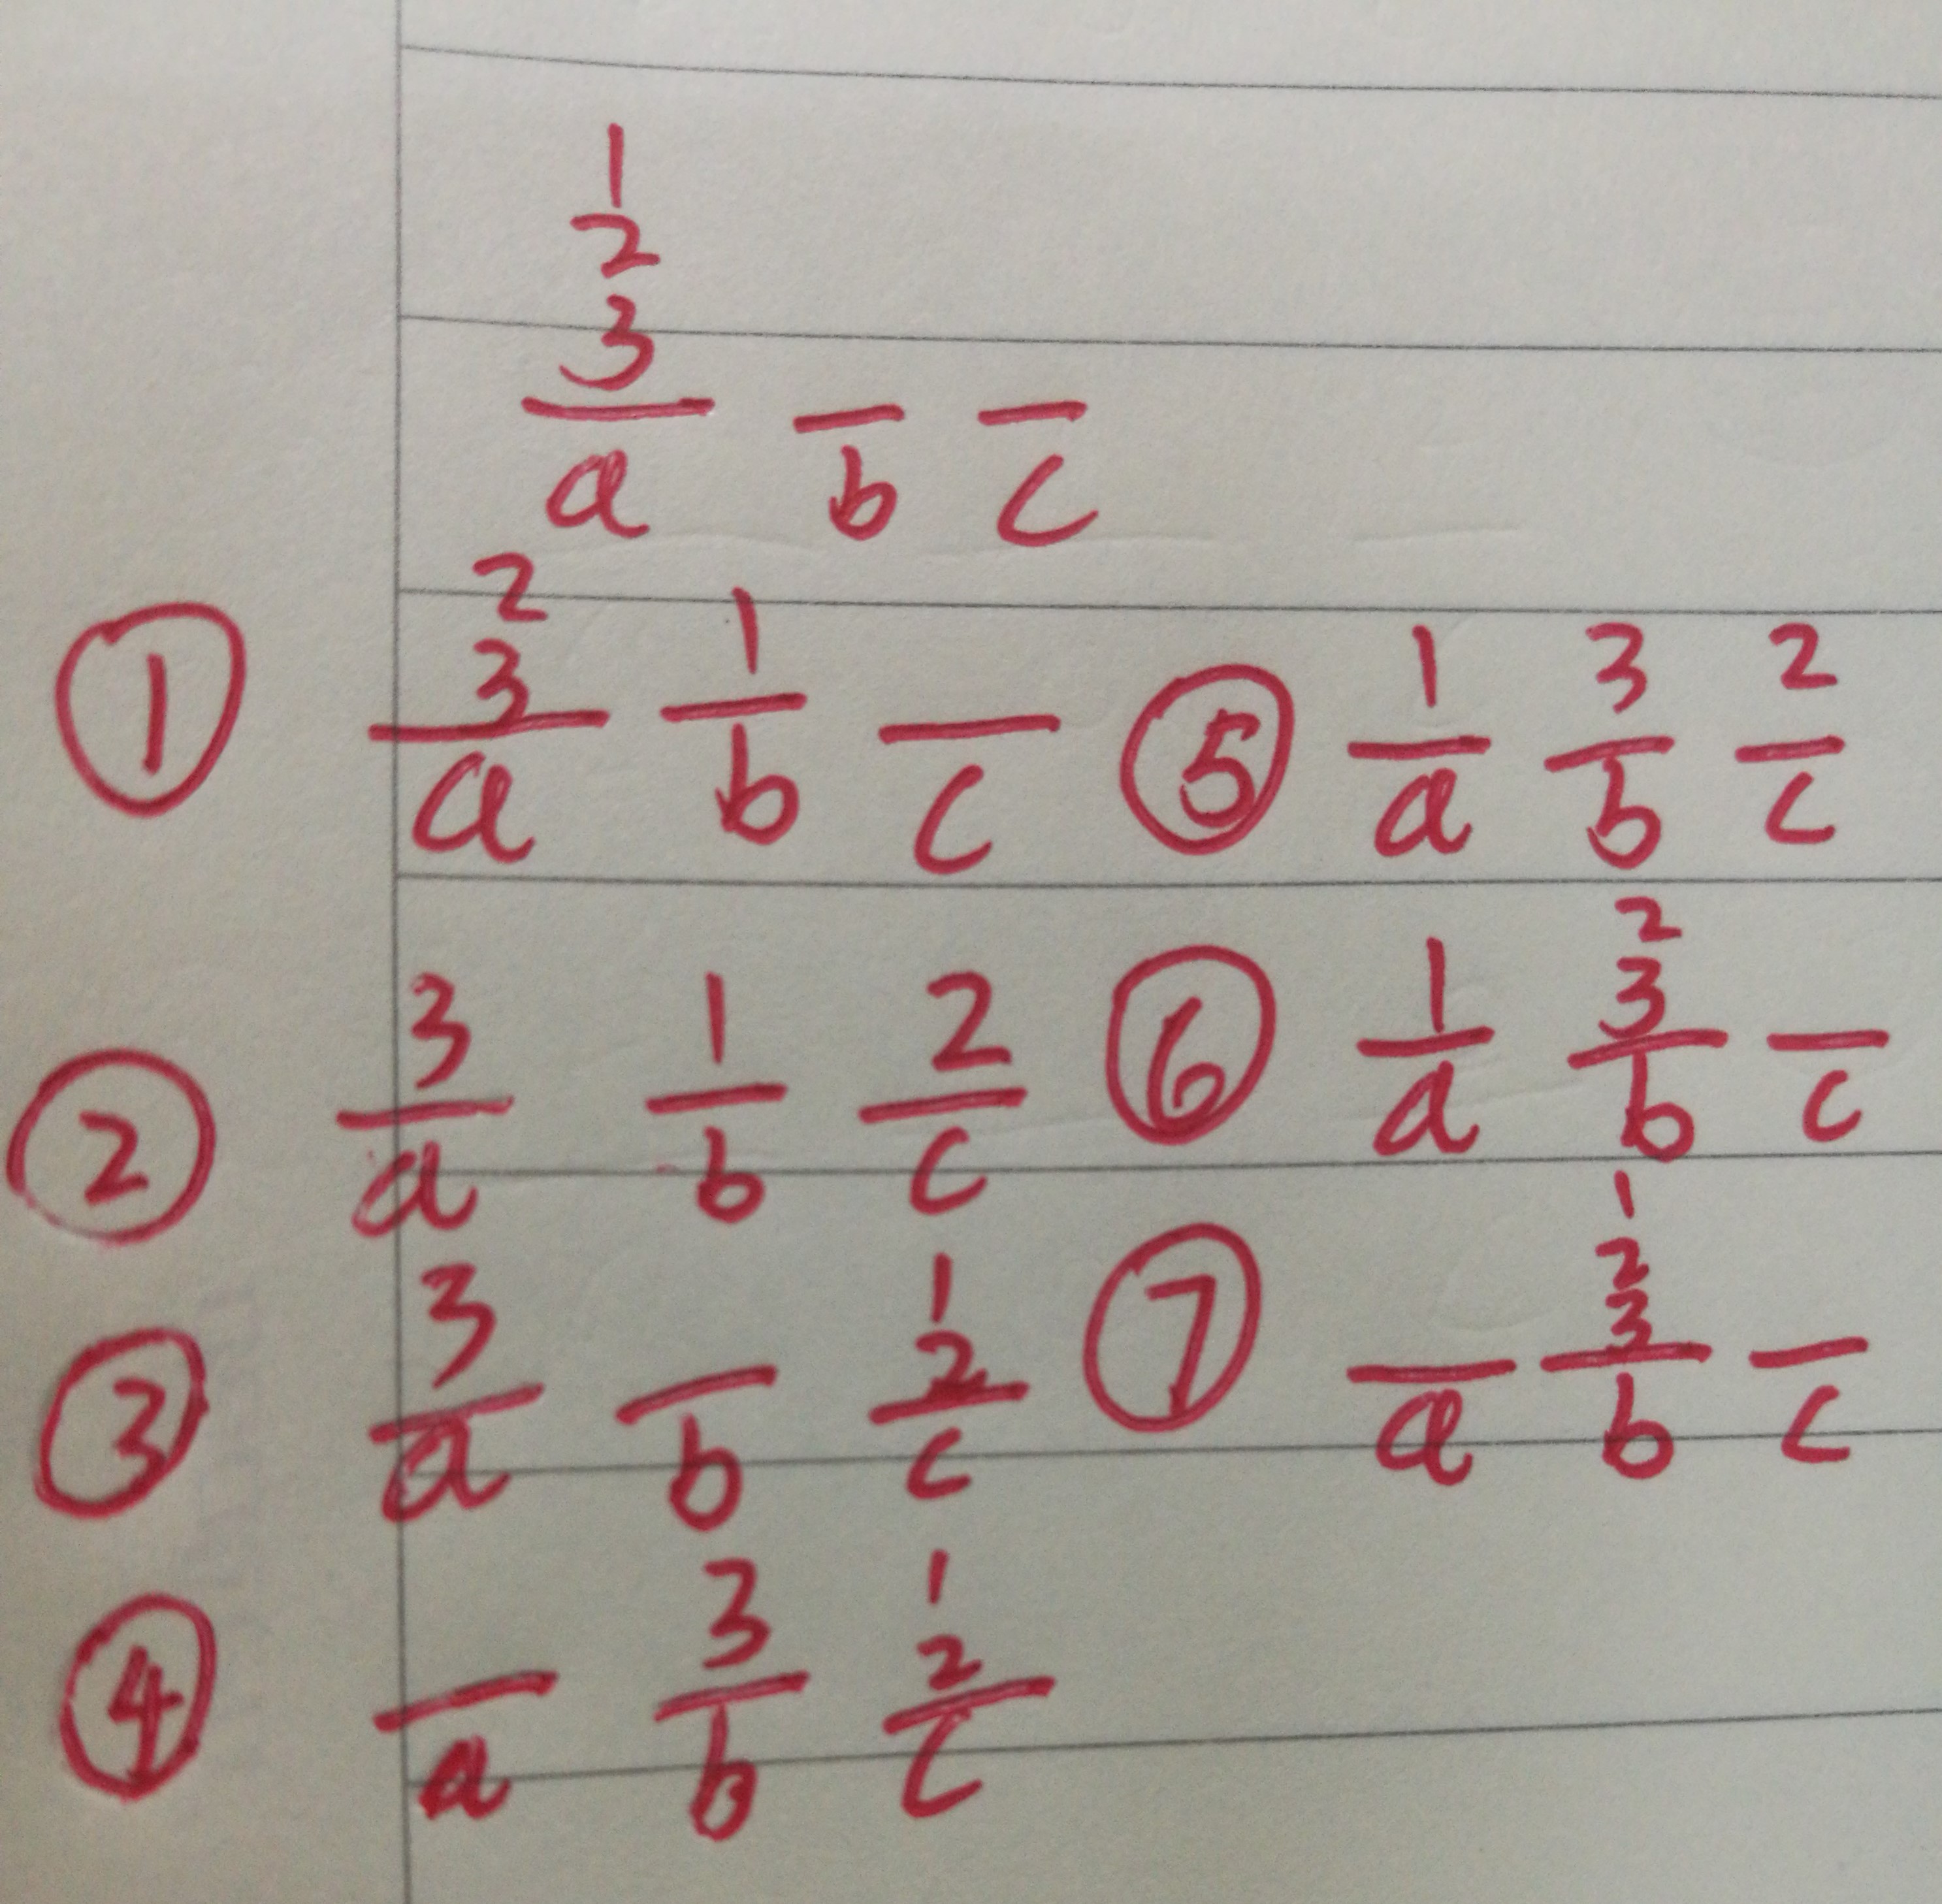 1
2
3
a b c
① 2
3 1
a b c
② 3 1 2
a b c
③ 3 1
2
a b c
④ 3 1
2
a b c
⑤ 1 3 2
a b c
⑥ 2
1 3
a b c
⑦ 1
2
3
a b c